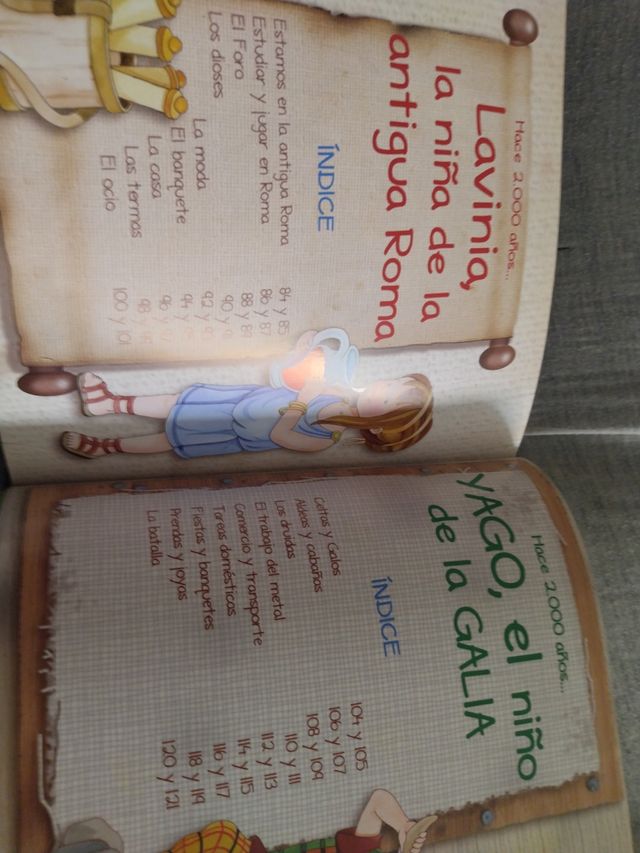 Hace 2.000 años...
Lavinia,
la niña de la
antigua Roma
ÍNDICE
Estamos en la antigua Roma 84 y 85
Estudiar y jugar en Roma 86 y 87
El Foro 88 y 89
Los dioses 90 y
La moda 92 y
El banquete 94 y
La casa 96 y 97
Las termas 98 y 99
El ocio 100 y 101
Hace 2.000 años...
YAGO, el niño
de la GALIA
ÍNDICE
Celtas y Galos 104 y 105
Aldeas y cabañas 106 y 107
Los druidas 108 y 109
El trabajo del metal 110 y 111
Comercio y transporte 112 y 113
Tareas domésticas 114 y 115
Fiestas y banquetes 116 y 117
Prendas y joyas 118 y 119
La batalla 120 y 121